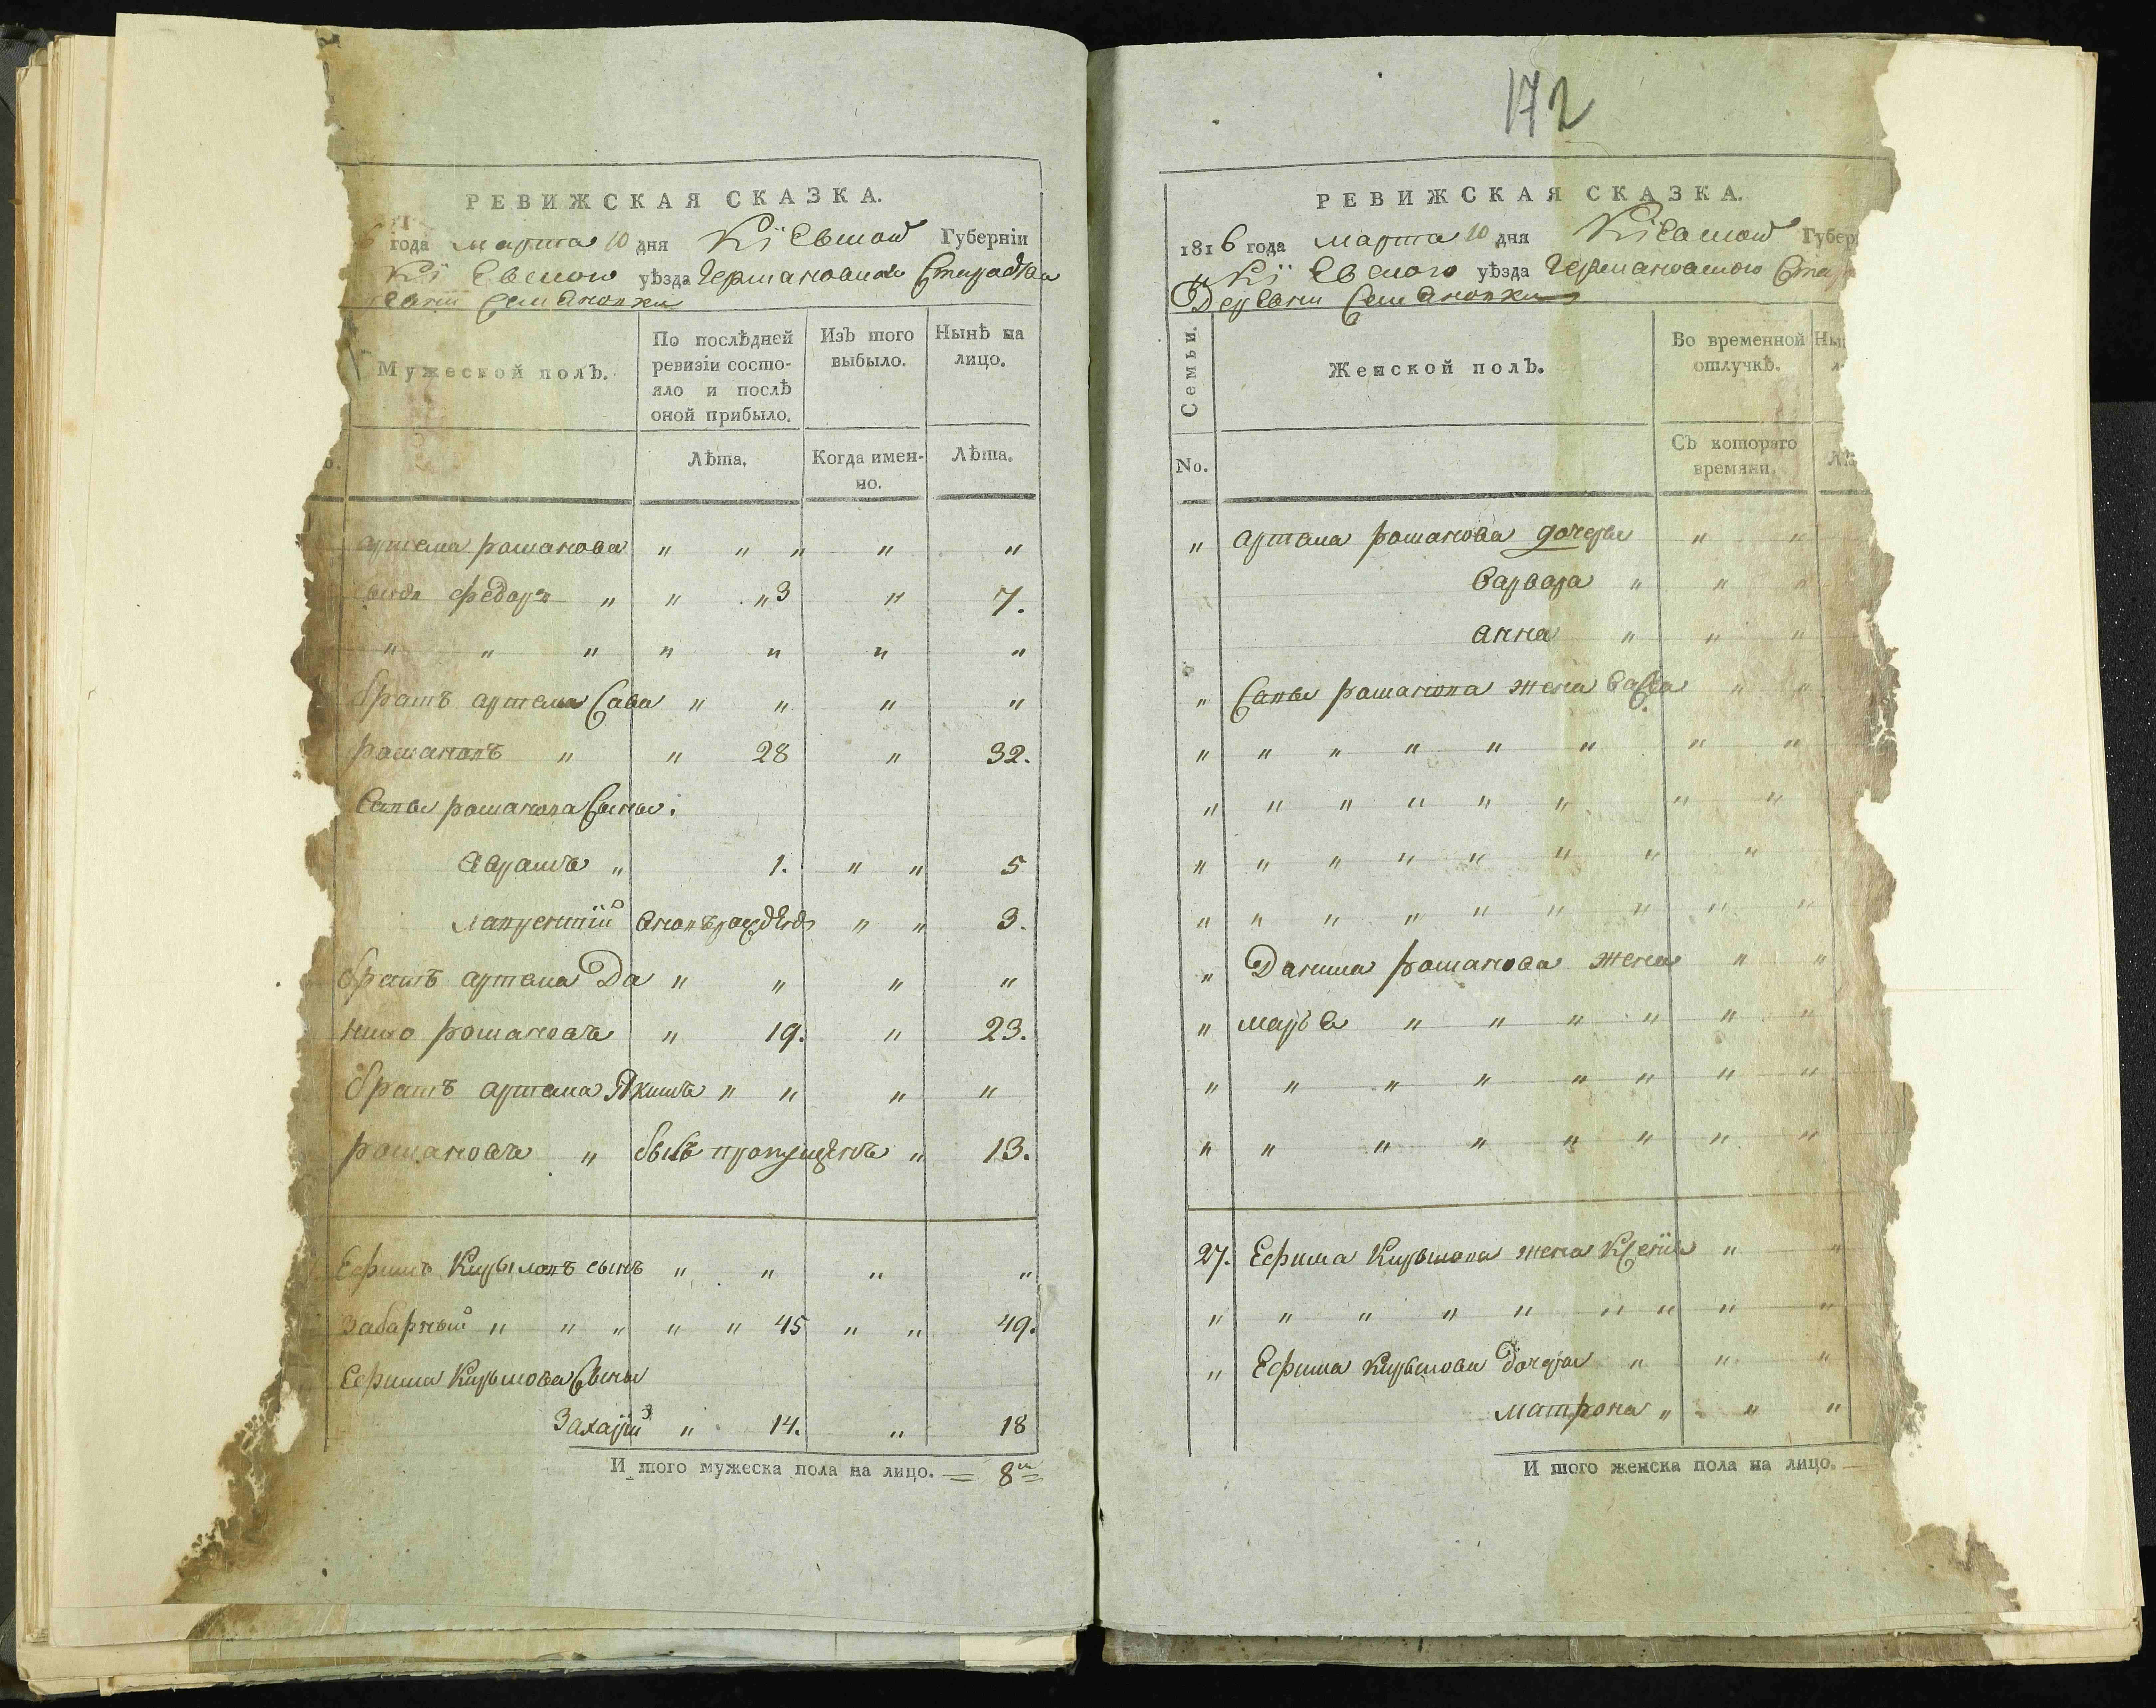 РЕВИЖСКАЯ СКАЗКА.
6 года марта 10 дня Кїевской Губернїи
Кїевского уѣзда Германовского
Семеновки
Мужеской полъ.
По послѣдней
ревизїи состо-
яло и послѣ
оной прибыло.
Изъ того
выбыло.
Нынѣ на
лицо.
Лѣта.
Когда имен-
но.
Лѣта.
артема романова " " " " "
сынъ федоръ " " " 3 " 7.
" " " " " " "
братъ артема Сава " " " "
романовъ " " 28 " 32.
Савы романова Сыны:
аврамъ " 1. " " 5
лаврентїй вновърожденъ " " 3.
братъ артема Да " " " "
нило романовъ " 19. " 23.
братъ артема Якимъ " " " "
романовъ " бывъ пропущенъ " 13.
Ефимъ Курыловъ сынъ " " " "
Забарный " " " " " 45 " " 49.
Ефима Курылова Сыны
Захарїй " 14. " 18
И того мужеска пола на лицо. = 8
172
РЕВИЖСКАЯ СКАЗКА.
1816 года марта 10 дня Кїевской Губер
Кїевского уѣзда Германовского
Деревни Семеновки
Семьи.
Женской полъ.
Во временной
отлучкѣ.
Ны
No.
Съ котораго
времяни.
Лѣ
" артема романова дочеры " "
варвара " " "
анна " " "
" Савы романова жена " "
" " " " " " " "
" " " " " " " "
" " " " " " " "
" " " " " " " " "
" Данила романова жена " "
" маря " " " " " "
" " " " " " " "
" " " " " " " "
27. Ефима Курылова жена Ксенїя " "
" " " " " " " " "
" Ефима Курылова дочеры " " "
матрона " " "
И того женска пола на лицо.